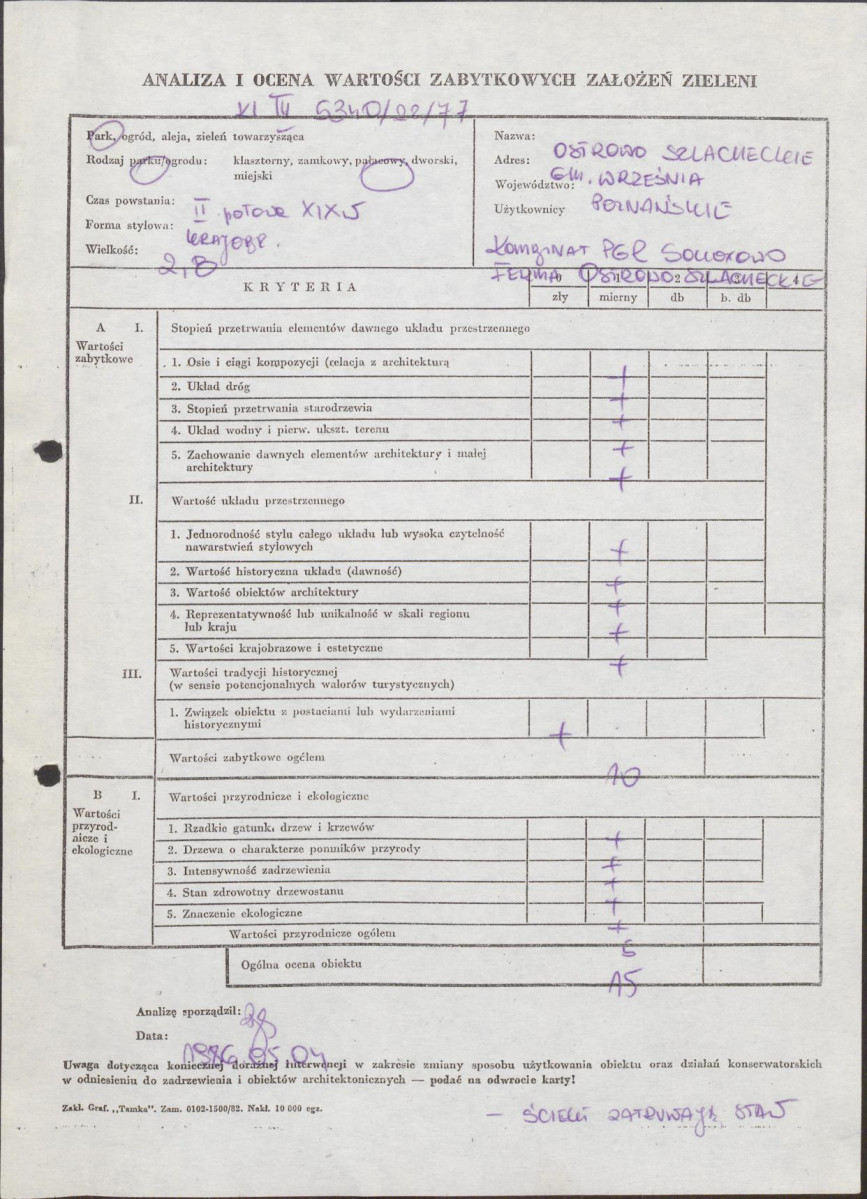 ANALIZA I OCENA WARTOŚCI ZABYTKOWYCH ZAŁOŻEŃ ZIELENI
XI IV 5340/22/77
Park, ogród, aleja, zieleń towarzysząca
Rodzaj parku/ogrodu: klasztorny, zamkowy, pałacowy, dworski, miejski
Czas powstania: II połowa XIX W
Forma stylowa: KRAJOBR.
Wielkość: 2,8
Nazwa: OSTROWO SZLACHECKIE
Adres: GM. WRZEŚNIA
Województwo: POZNAŃSKIE
Użytkownicy
KOMBINAT PGR SOKOŁOWO
FERMA OSTROWO SZLACHECKIE
KRYTERIA
2 4
zły mierny db b. db
A I. Stopień przetrwania elementów dawnego układu przestrzennego
Wartości
zabytkowe
1. Osie i ciągi kompozycji (relacja z architekturą +
2. Układ dróg +
3. Stopień przetrwania starodrzewia +
4. Układ wodny i pierw. ukszt. terenu +
5. Zachowanie dawnych elementów architektury i małej
architektury +
II. Wartość układu przestrzennego
1. Jednorodność stylu całego układu lub wysoka czytelność
nawarstwień stylowych +
2. Wartość historyczna układu (dawność) +
3. Wartość obiektów architektury +
4. Reprezentatywność lub unikalność w skali regionu
lub kraju +
5. Wartości krajobrazowe i estetyczne +
III. Wartości tradycji historycznej
(w sensie potencjonalnych walorów turystycznych)
1. Związek obiektu z postaciami lub wydarzeniami
historycznymi +
Wartości zabytkowe ogółem 10
B I. Wartości przyrodnicze i ekologiczne
Wartości
przyrod-
nicze i
ekologiczne
1. Rzadkie gatunki drzew i krzewów +
2. Drzewa o charakterze pomników przyrody +
3. Intensywność zadrzewienia +
4. Stan zdrowotny drzewostanu +
5. Znaczenie ekologiczne +
Wartości przyrodnicze ogółem 5
Ogólna ocena obiektu 15
Analizę sporządził:
Data: 1986.05.04
Uwaga dotycząca koniecznej doraźnej interwencji w zakresie zmiany sposobu użytkowania obiektu oraz działań konserwatorskich
w odniesieniu do zadrzewienia i obiektów architektonicznych — podać na odwrocie karty!
Zakł. Graf. „Tamka". Zam. 0102-1500/82. Nakł. 10 000 egz.
— ŚCIEKI ZATRUWAJĄ STAW